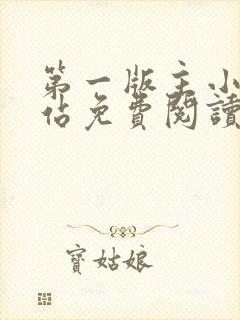 第一版主小
佔免費閱讀
寶姑娘